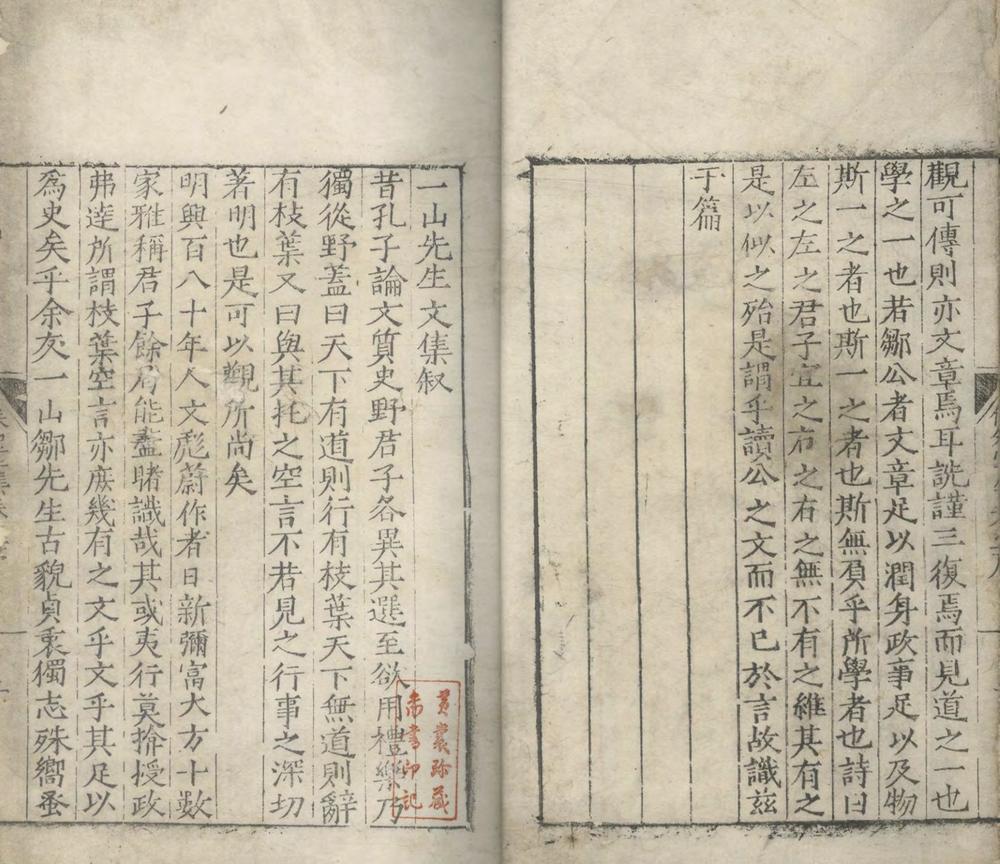 觀可傳則亦文章焉耳詵謹三復焉而見道之一也
學之一也若鄒公者文章足以潤身政事足以及物
斯一之者也斯一之者也斯無負乎所學者也詩曰
左之左之君子宜之右之右之無不有之維其有之
是以似之殆是謂乎讀公之文而不已於言故識茲
于篇
一山先生文集叙
昔孔子論文質史野君子各異其選至欲用禮樂乃
獨從野蓋曰天下有道則行有枝葉天下無道則辭
有枝葉又曰與其托之空言不若見之行事之深切
著明也是可以觀所尚矣
明興百八十年人文彪蔚作者日新彌富大方十數
家雅稱君子餘有能盡睹識哉其或夷行莫揜授政
弗逹所謂枝葉空言亦庶幾有之文乎文乎其足以
為史矣乎余友一山鄒先生古貌貞衷獨志殊嚮蚤